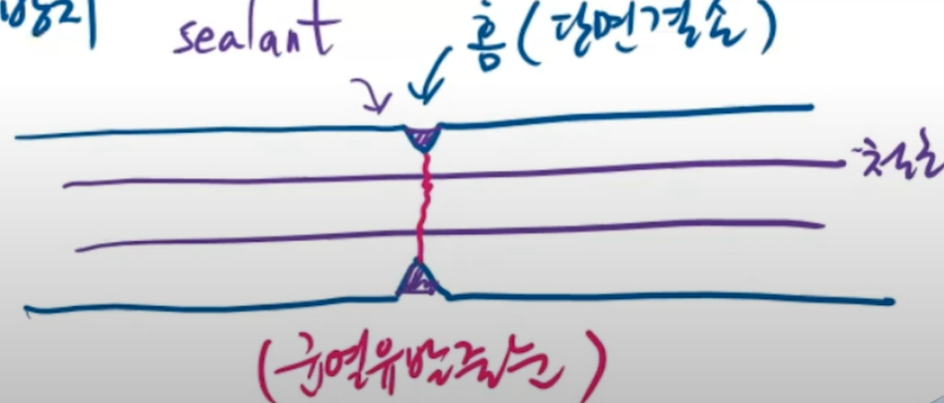 방지
sealant
홈(단면결손)
철근
(균열유발줄눈)